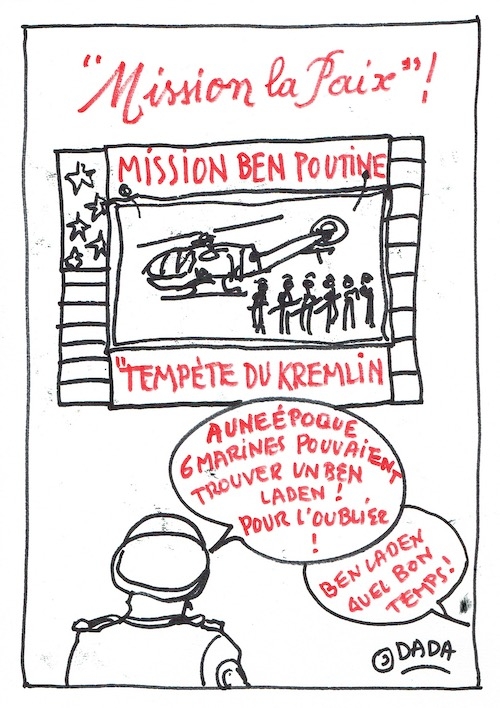 "Mission la Paix"!
MISSION BEN POUTINE
"TEMPÉTE DU KREMLIN
A UNE ÉPOQUE
6 MARINES POUVAIENT
TROUVER UN BEN
LADEN !
POUR L'OUBLIER
!
BEN LADEN
QUEL BON
TEMPS!
© DADA